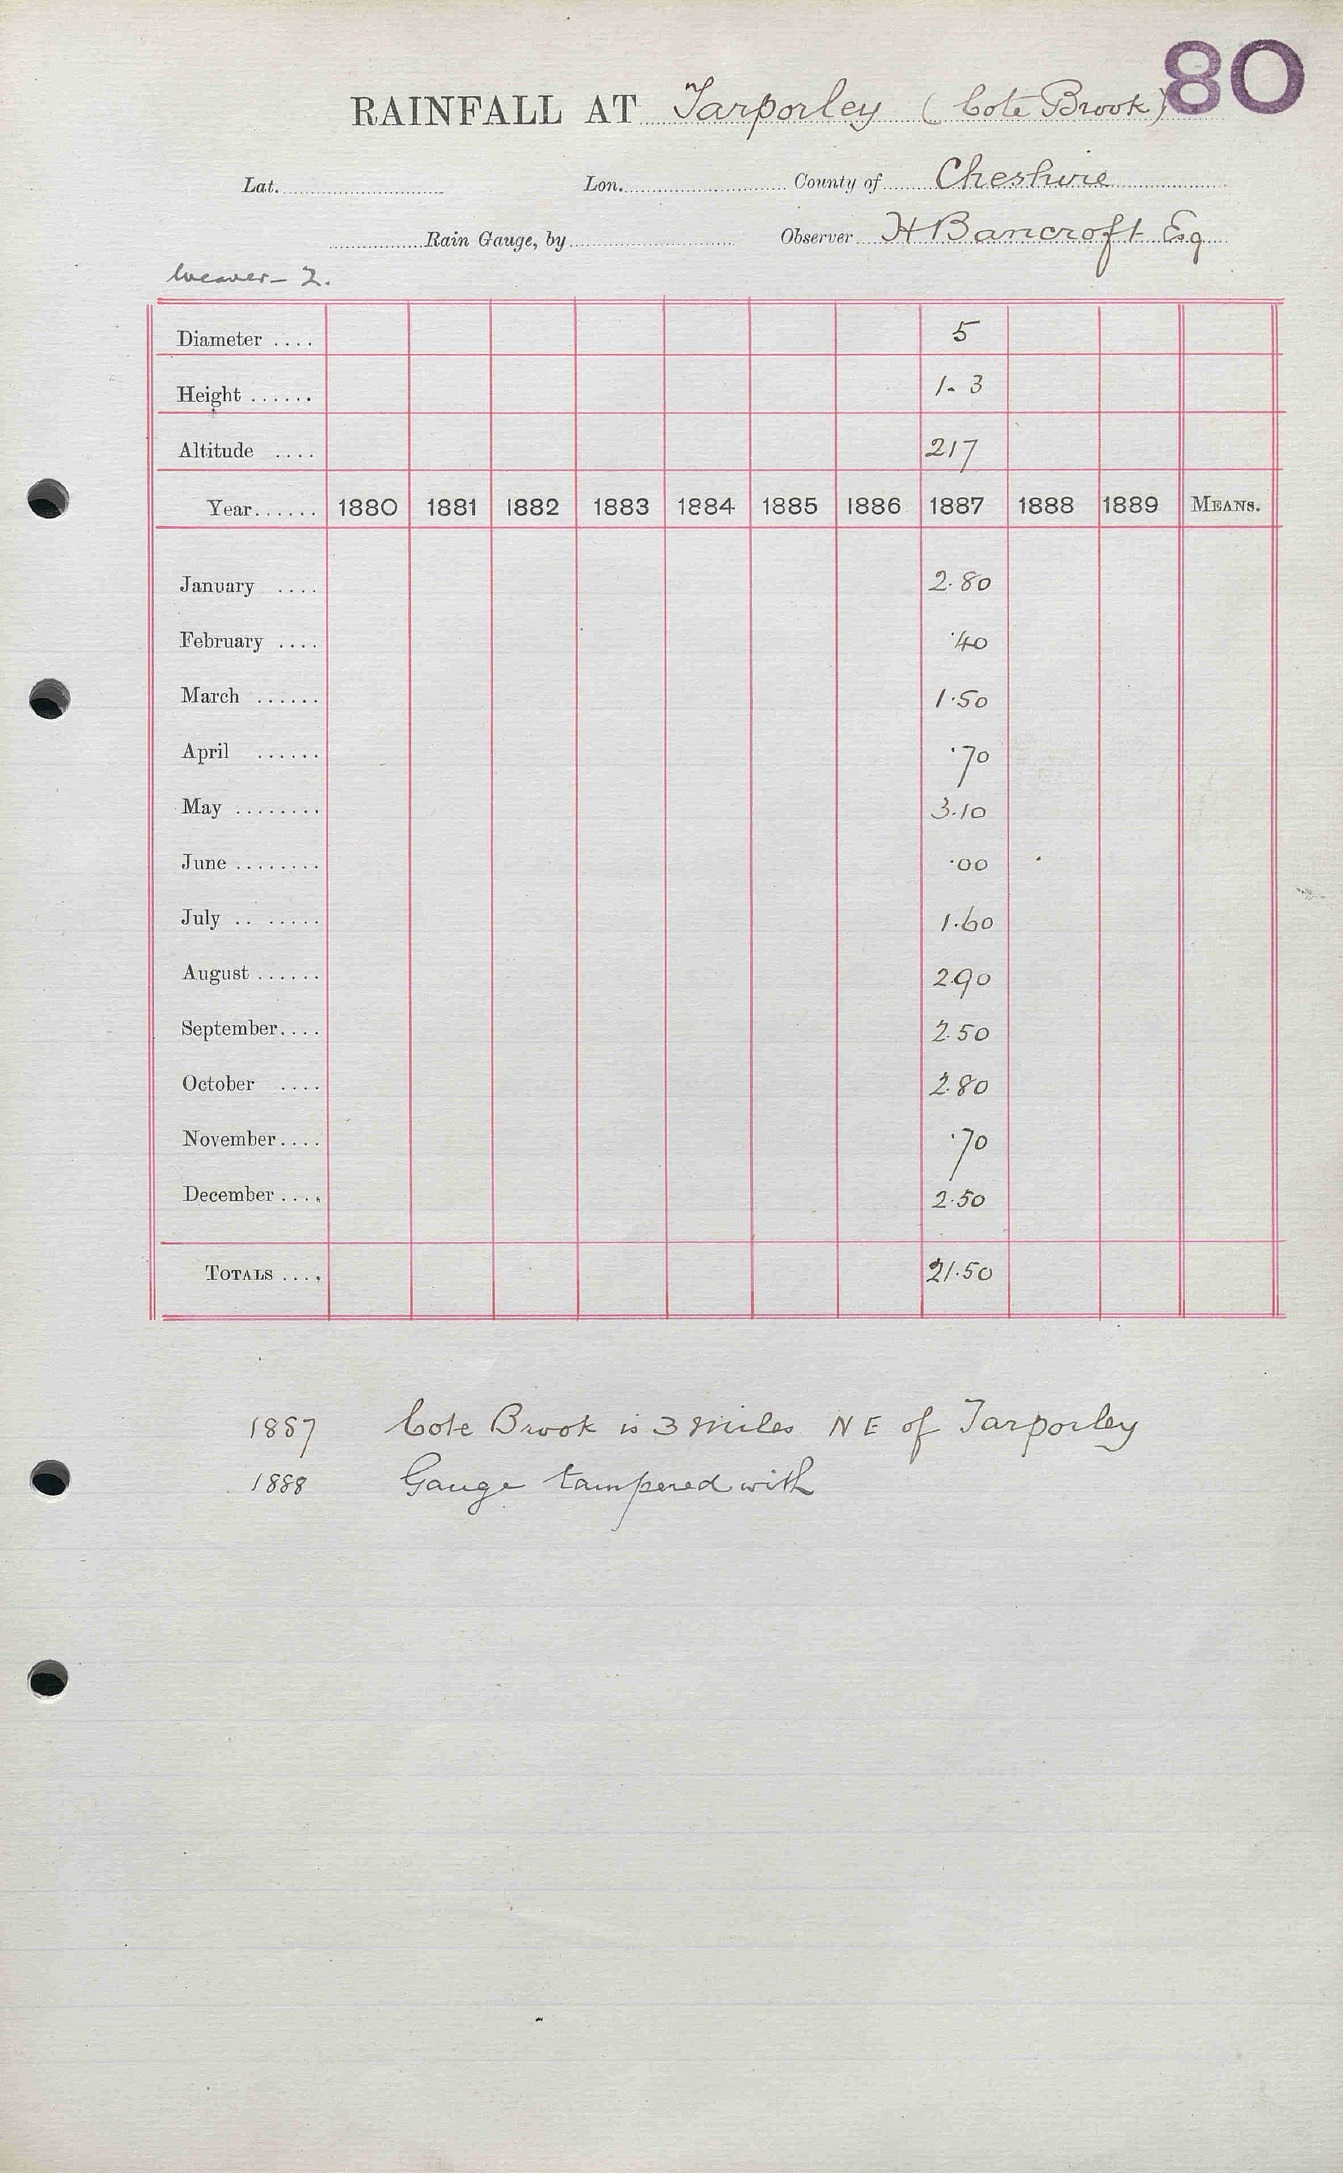 80
RAINFALL AT Tarporley (Cote Brook)
Lat. Lon. County of Cheshire
Rain Gauge, by Observer H Bancroft Esq
Weaver - 2.
Diameter .... 5
Height ...... 1- 3
Altitude .... 217
Year...... 1880 1881 1882 1883 1884 1885 1886 1887 1888 1889 MEANS.
January .... 2.80
February .... .40
March ...... 1.50
April ...... .70
May ........ 3.10
June ........ .00
July .. ...... 1.60
August ...... 2.90
September.... 2.50
October .... 2.80
November.... .70
December .... 2.50
TOTALS .... 21.50
1887 Cote Brook is 3 miles NE of Tarporley
1888 Gauge tampered with